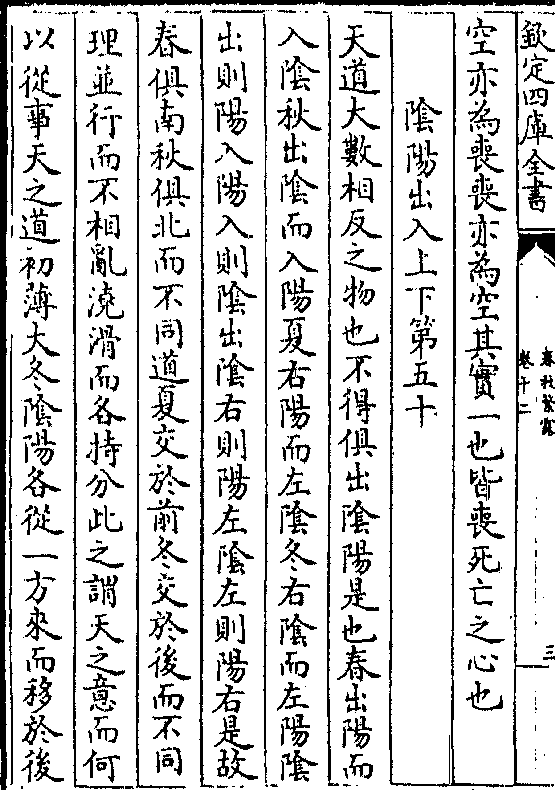 欽定四庫全書
春秋繁露
卷十二
三
空亦為喪喪亦為空其實一也皆喪死亡之心也
陰陽出入上下第五十
天道大數相反之物也不得俱出陰陽是也春出陽而
入陰秋出陰而入陽夏右陽而左陰冬右陰而左陽陰
出則陽入陽入則陰出陰右則陽左陰左則陽右是故
春俱南秋俱北而不同道夏交於前冬交於後而不同
理並行而不相亂澆滑而各持分此之謂天之意而何
以從事天之道初薄大冬陰陽各從一方來而移於後